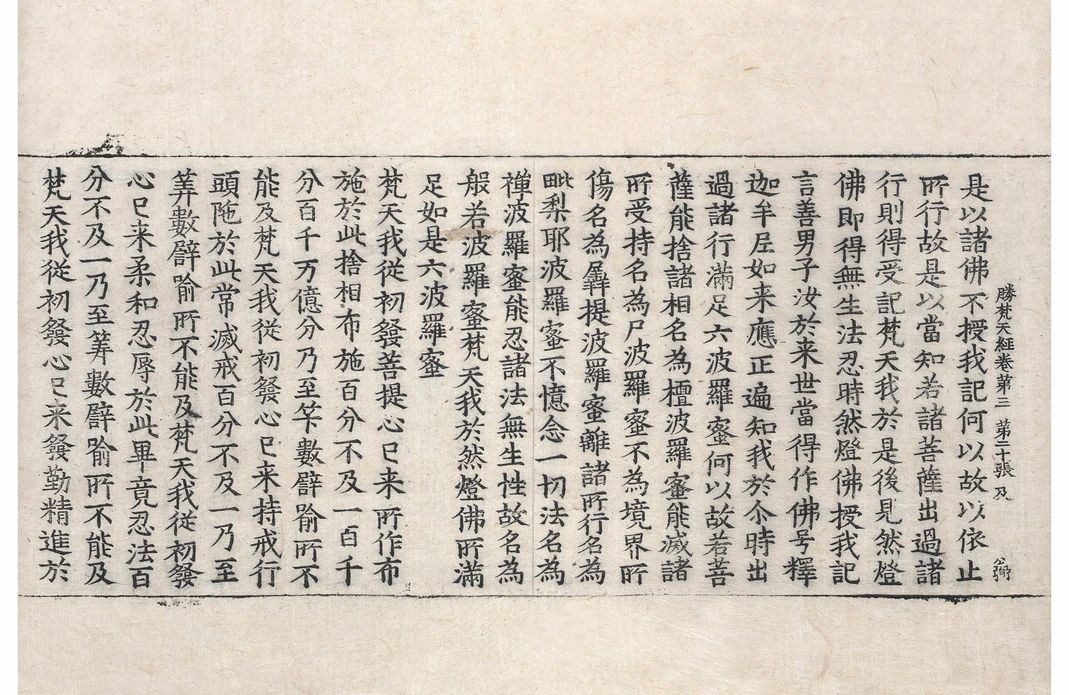 勝梵天経卷第三　第二十張　及
是以諸佛不授我記何以故以依止
所行故是以當知若諸菩薩出過諸
行則得受記梵天我於是後見然燈
佛即得無生法忍時然燈佛授我記
言善男子汝於来世當得作佛号釋
迦牟尼如来應正遍知我於尒時出
過諸行滿足六波羅蜜何以故若菩
薩能捨諸相名為檀波羅蜜能滅諸
所受持名為尸波羅蜜不為境界所
傷名為羼提波羅蜜離諸所行名為
毗梨耶波羅蜜不憶念一切法名為
禪波羅蜜能忍諸法無生性故名為
般若波羅蜜梵天我於然燈佛所滿
足如是六波羅蜜
梵天我從初發菩提心已来所作布
施於此捨相布施百分不及一百千
分百千万億分乃至筭數譬喻所不
能及梵天我從初發心已来持戒行
頭陁於此常滅戒百分不及一乃至
筭數譬喻所不能及梵天我從初發
心已来柔和忍辱於此畢竟忍法百
分不及一乃至筭數譬喻所不能及
梵天我從初發心已来發勤精進於